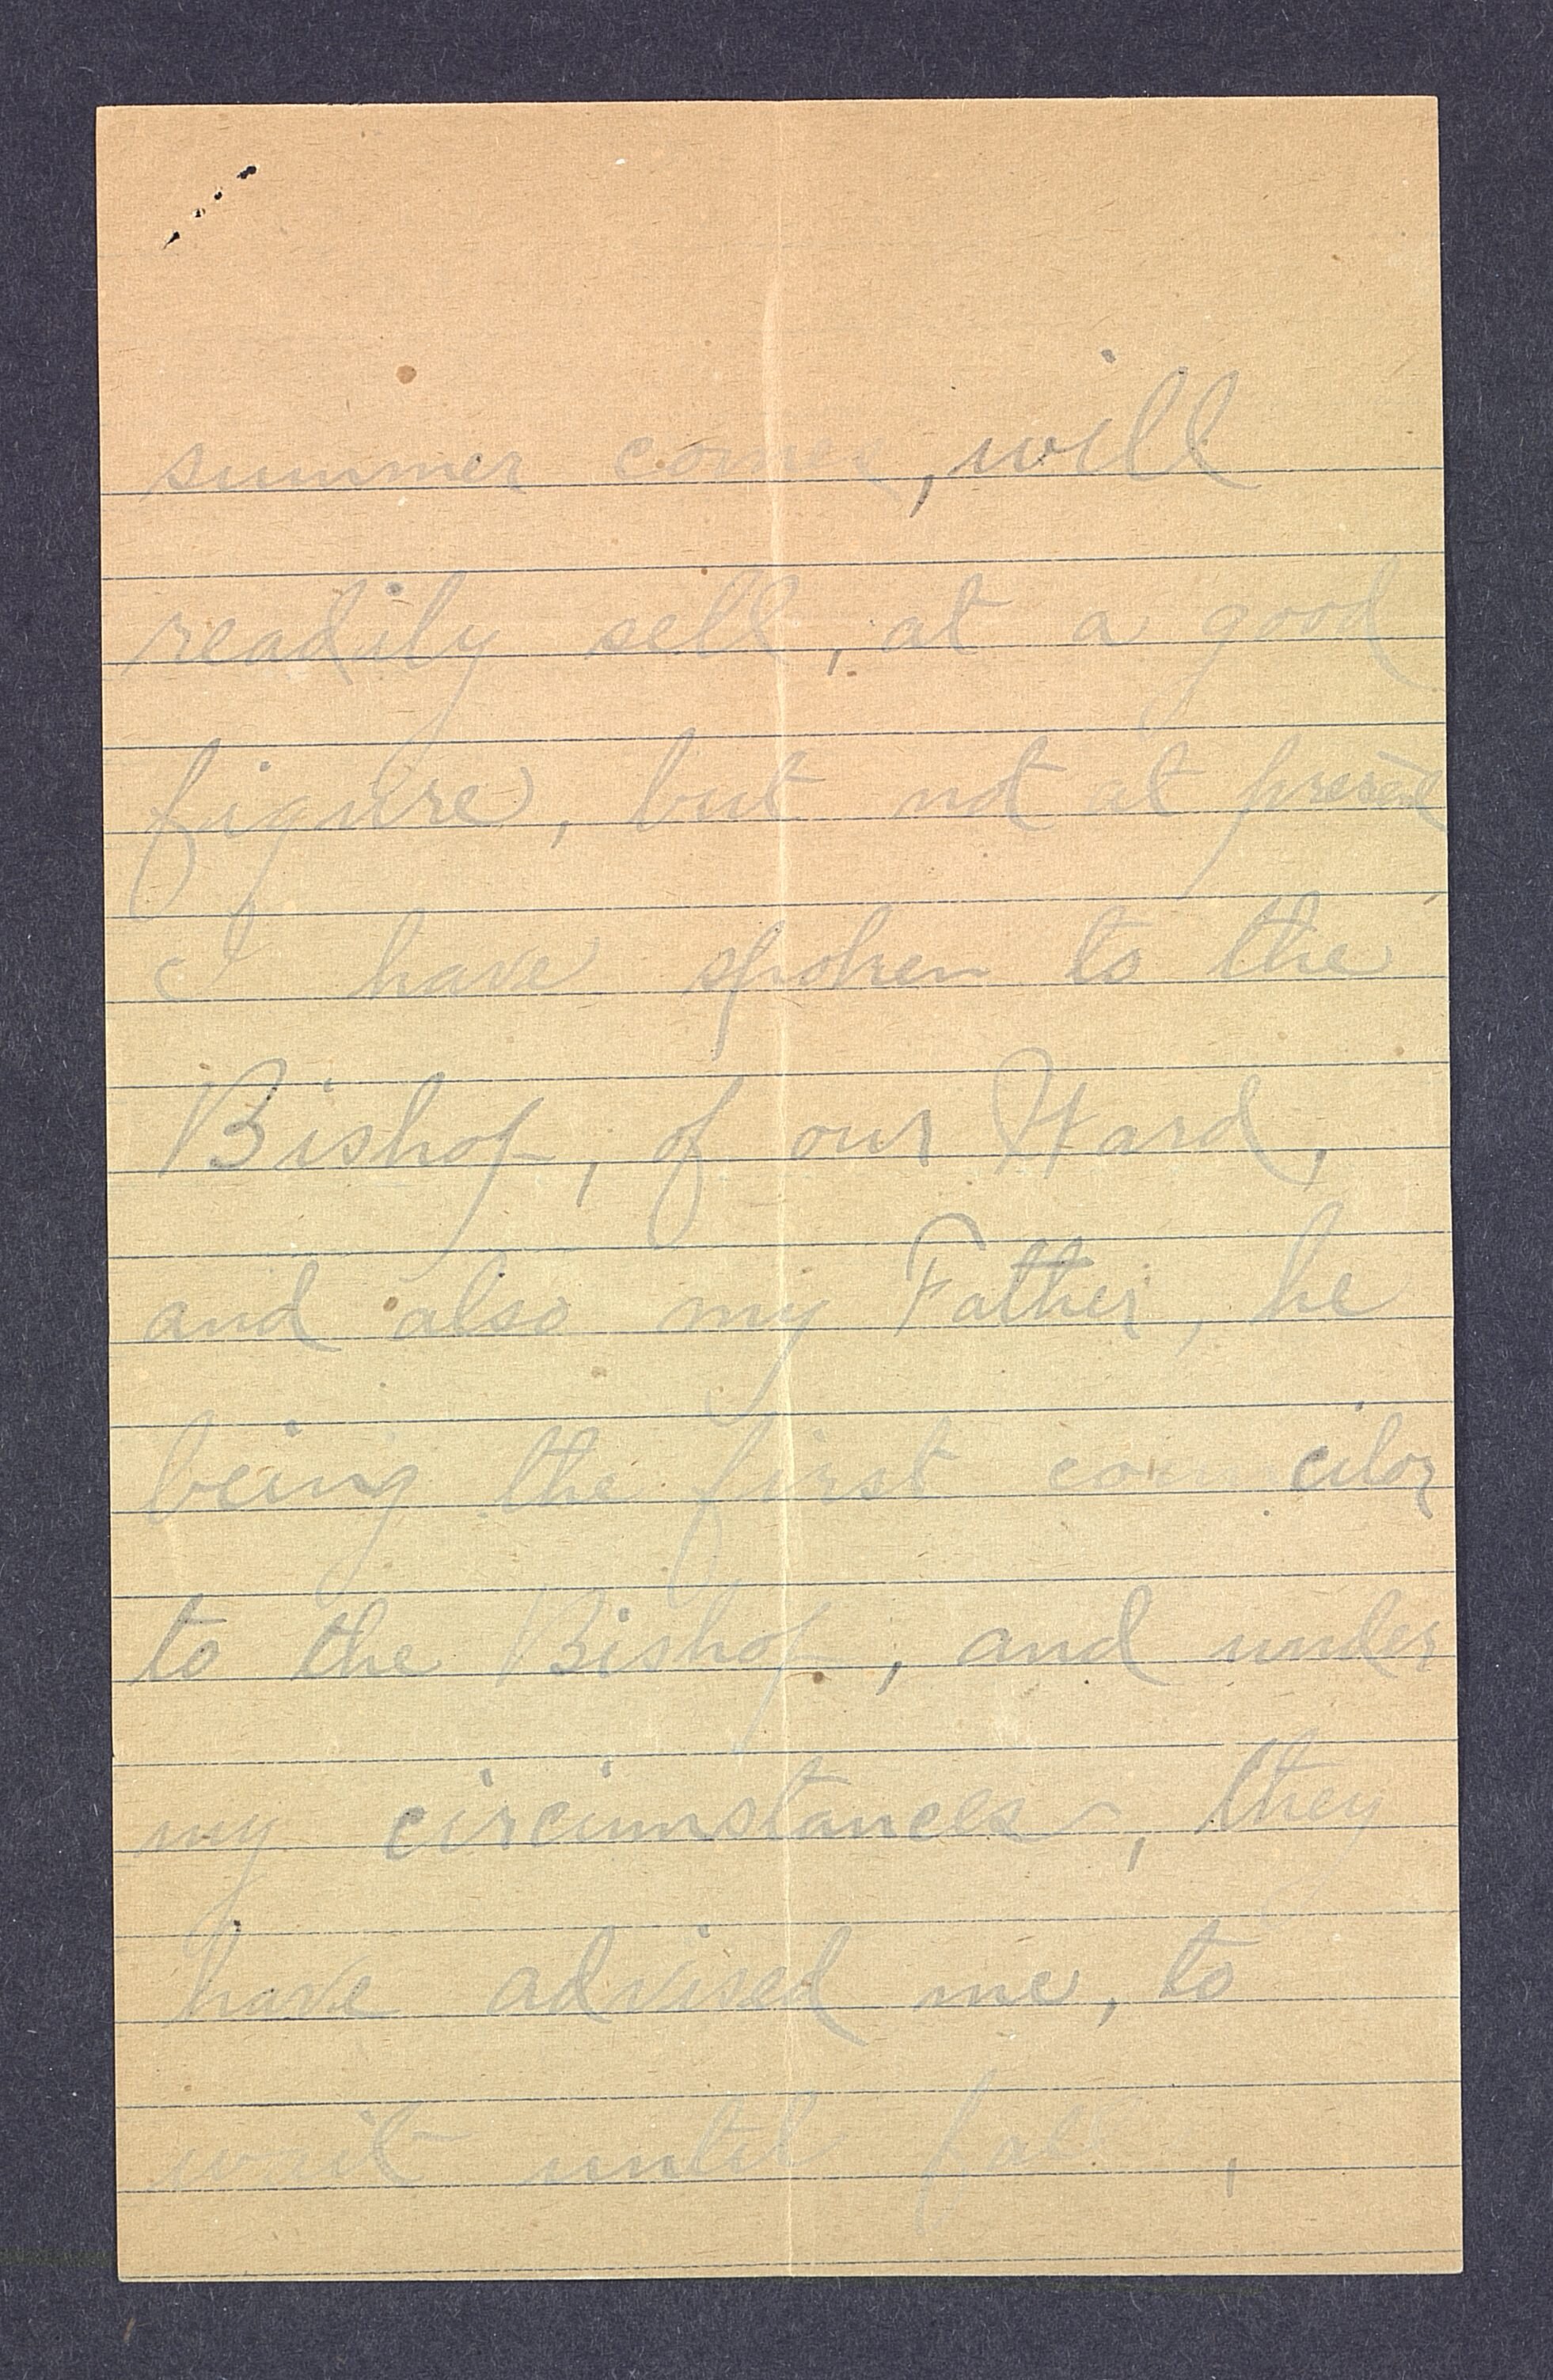 summer comes, will
readily sell, at a good
figure, but not at present
I have spoken to the
Bishop, of our Ward,
and also my Father, he
being the first councilor
to the Bishop, and under
my circumstances, they
have advised me, to
wait until fall,